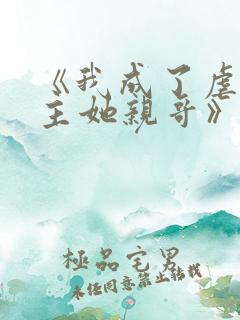 《我成了虐
主她親哥》
極品宅男
未任同意禁止轉載